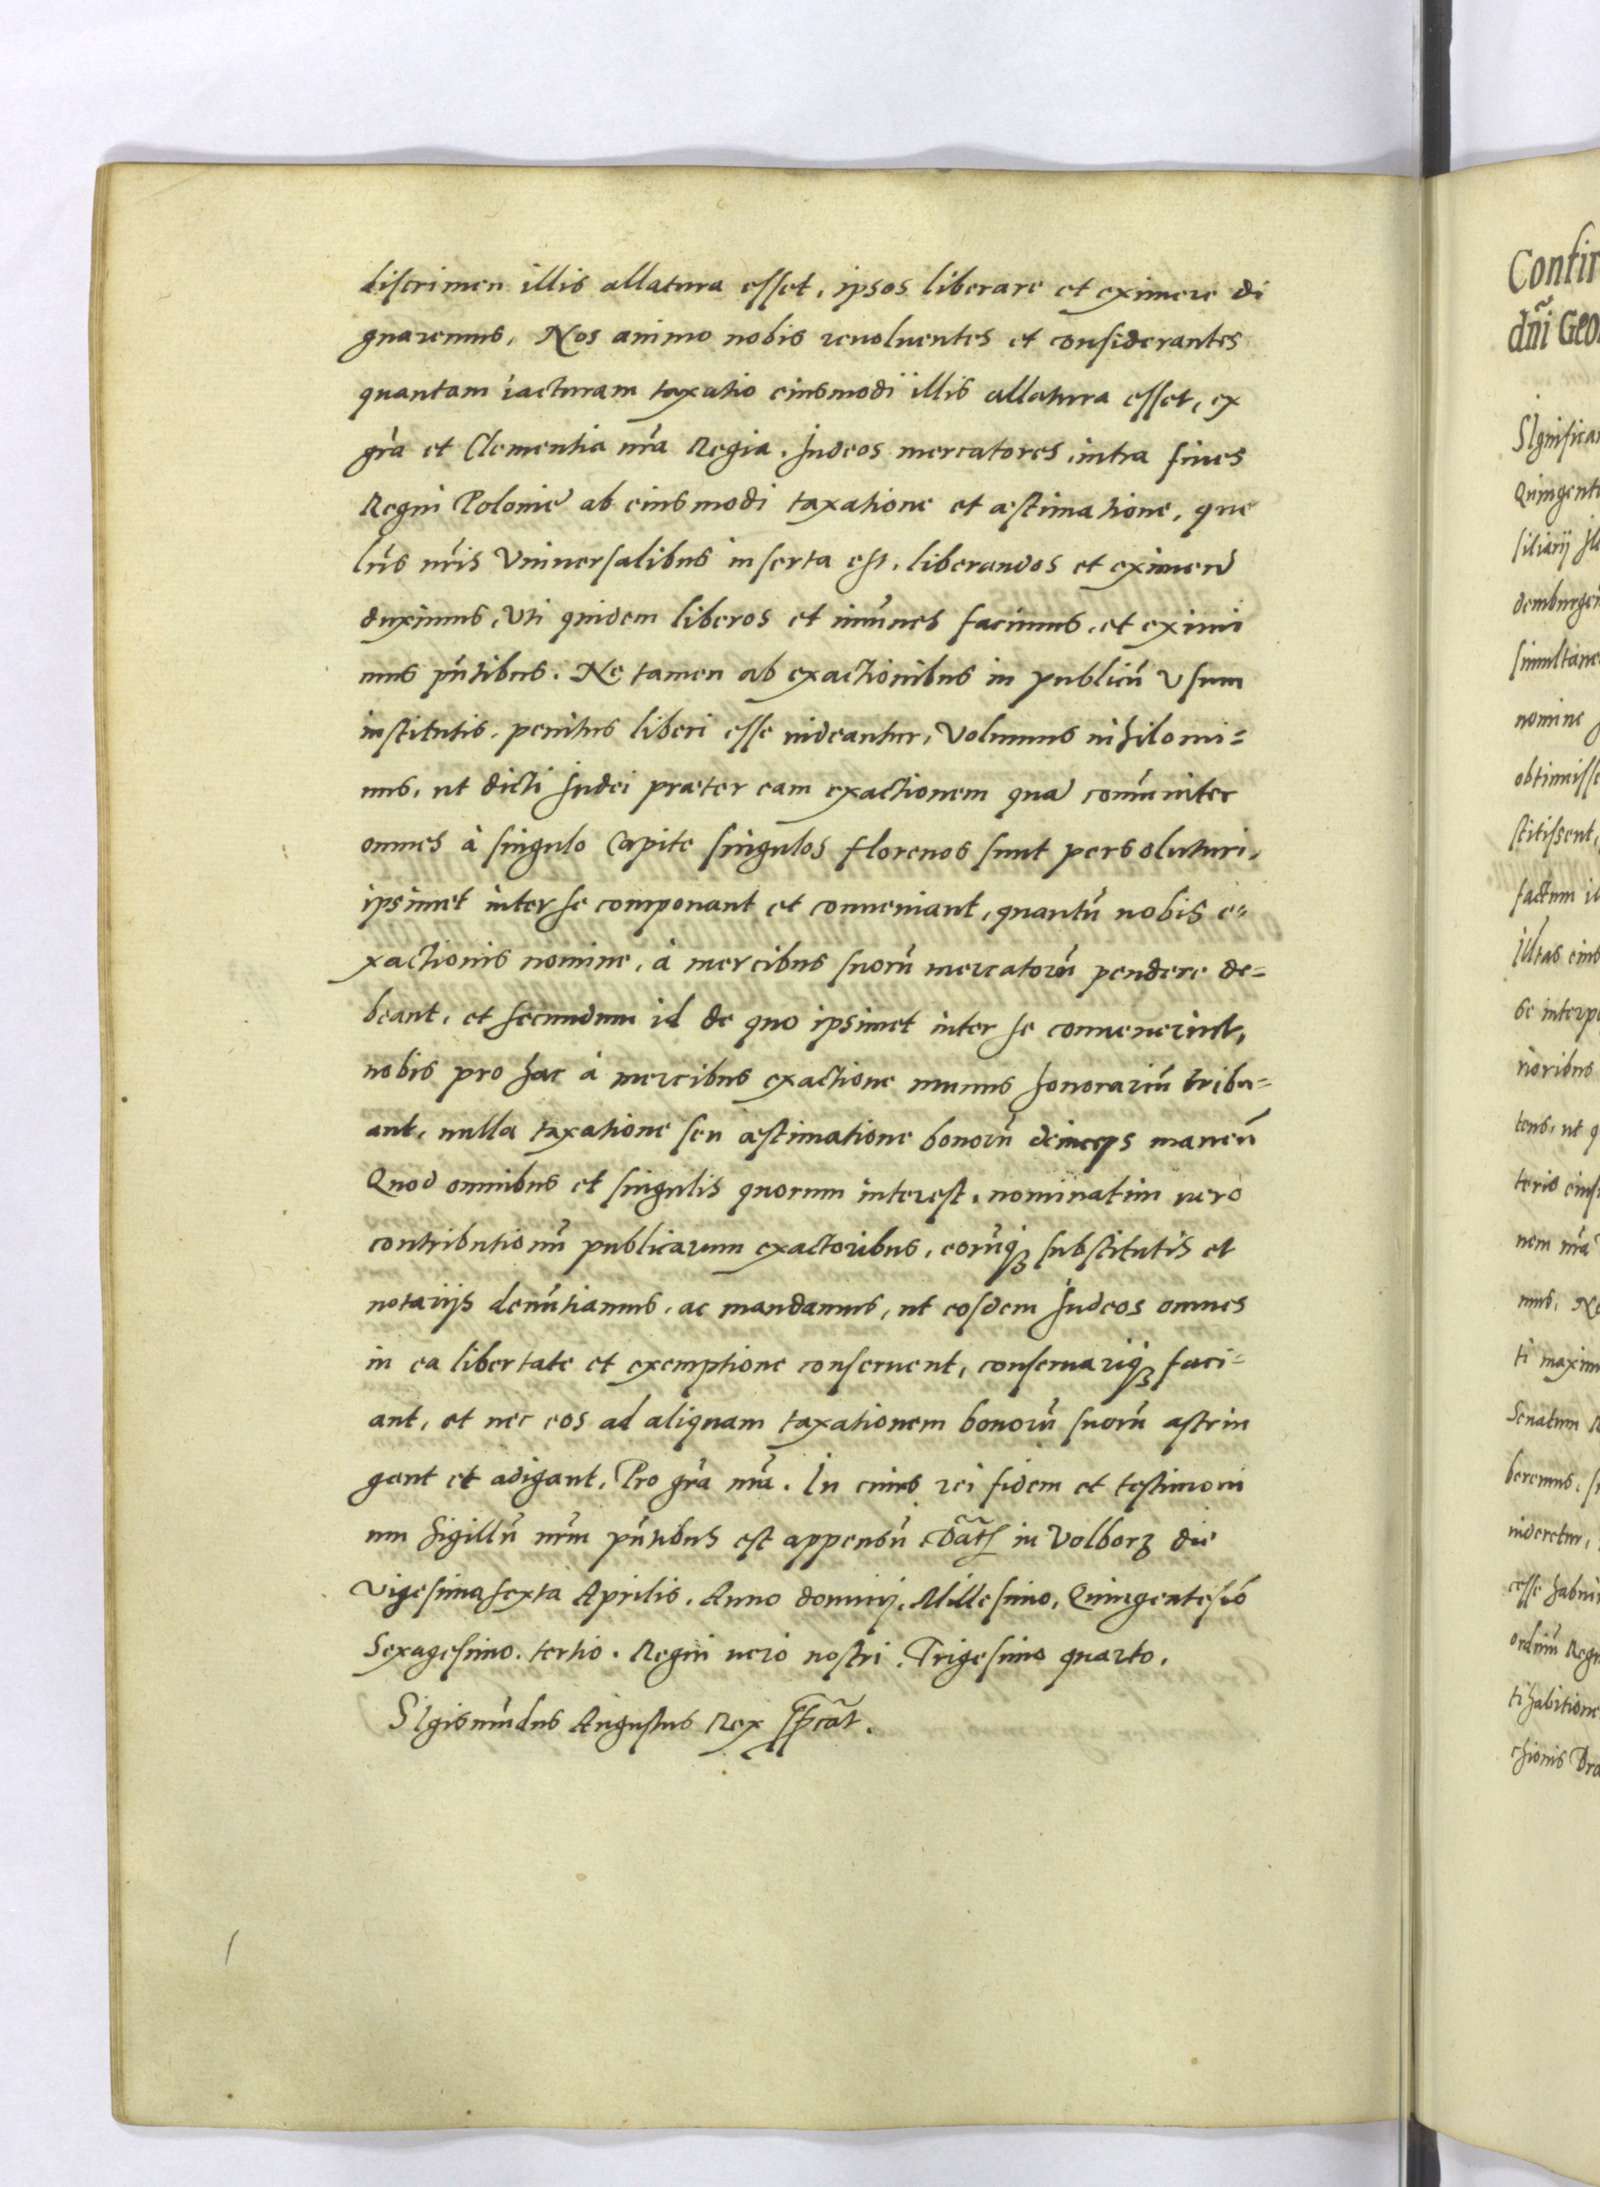 discrimen illis allatura esset, ipsos liberare et eximere di
gnaremus, Nos animo nobis revolventes et considerantes
quantam iacturam taxatio eiusmodi illis allatura esset, ex
gra et Clementia nra Regia, Judeos mercatores, intra fines
Regni Polonie ab eiusmodi taxatione et æstimatione, que
lris nris Universalibus inserta est, liberandos et eximend
duximus, Uti quidem liberos et imunes facimus, et eximi
mus pntibus. Ne tamen ab exactionibus in publicũ Usum
institutis, penitus liberi esse uideantur, Volumus nihilomi=
nus, ut dicti Judei præter eam exactionem qua comũniter
omnes à singulo Capite singulos florenos sunt persoluturi,
ipsimet inter se componant et conueniant, quantũ nobis e=
xactionis nomine, à mercibus suorũ mercatorũ pendere de=
beant, et secundum id de quo ipsimet inter se conuenerint,
nobis pro hac à mercibus exactione munus honorariũ tribu=
ant, nulla taxatione seu æstimatione bonorũ deinceps manen
Quod omnibus et singulis quorum interest, nominatim uero
contributionũ publicarum exactoribus, eorũq substitutis et
notarijs denũtiamus, ac mandamus, ut eosdem Judeos omnes
in ea libertate et exemptione conseruent, conseruariq faci=
ant, et nec eos ad aliquam taxationem bonorũ suorũ astrin
gant et adigant, Pro gra nra. In cuius rei fidem et testimoni
um sigillũ nrm pntibus est appensũ Dat in Volborz die
Vigesima sexta Aprilis, Anno dominj, Millesimo, Quingentesio
Sexagesimo tertio. Regni uero nostri Trigesimo quarto.
SIgismũdus Augustus Rex
Confir
dni Geo
SIgnifica
Quingent
siliarij
demburgen
simultane
nomine
obtinuisse
stitissent,
factum il
se interp
rioribus
tens, ut q
nem nra
mus, No
ti maxim
Senatum
beremus,
uideretur,
esse habui
ordinũ Regn
ti habitione
chionis Bra